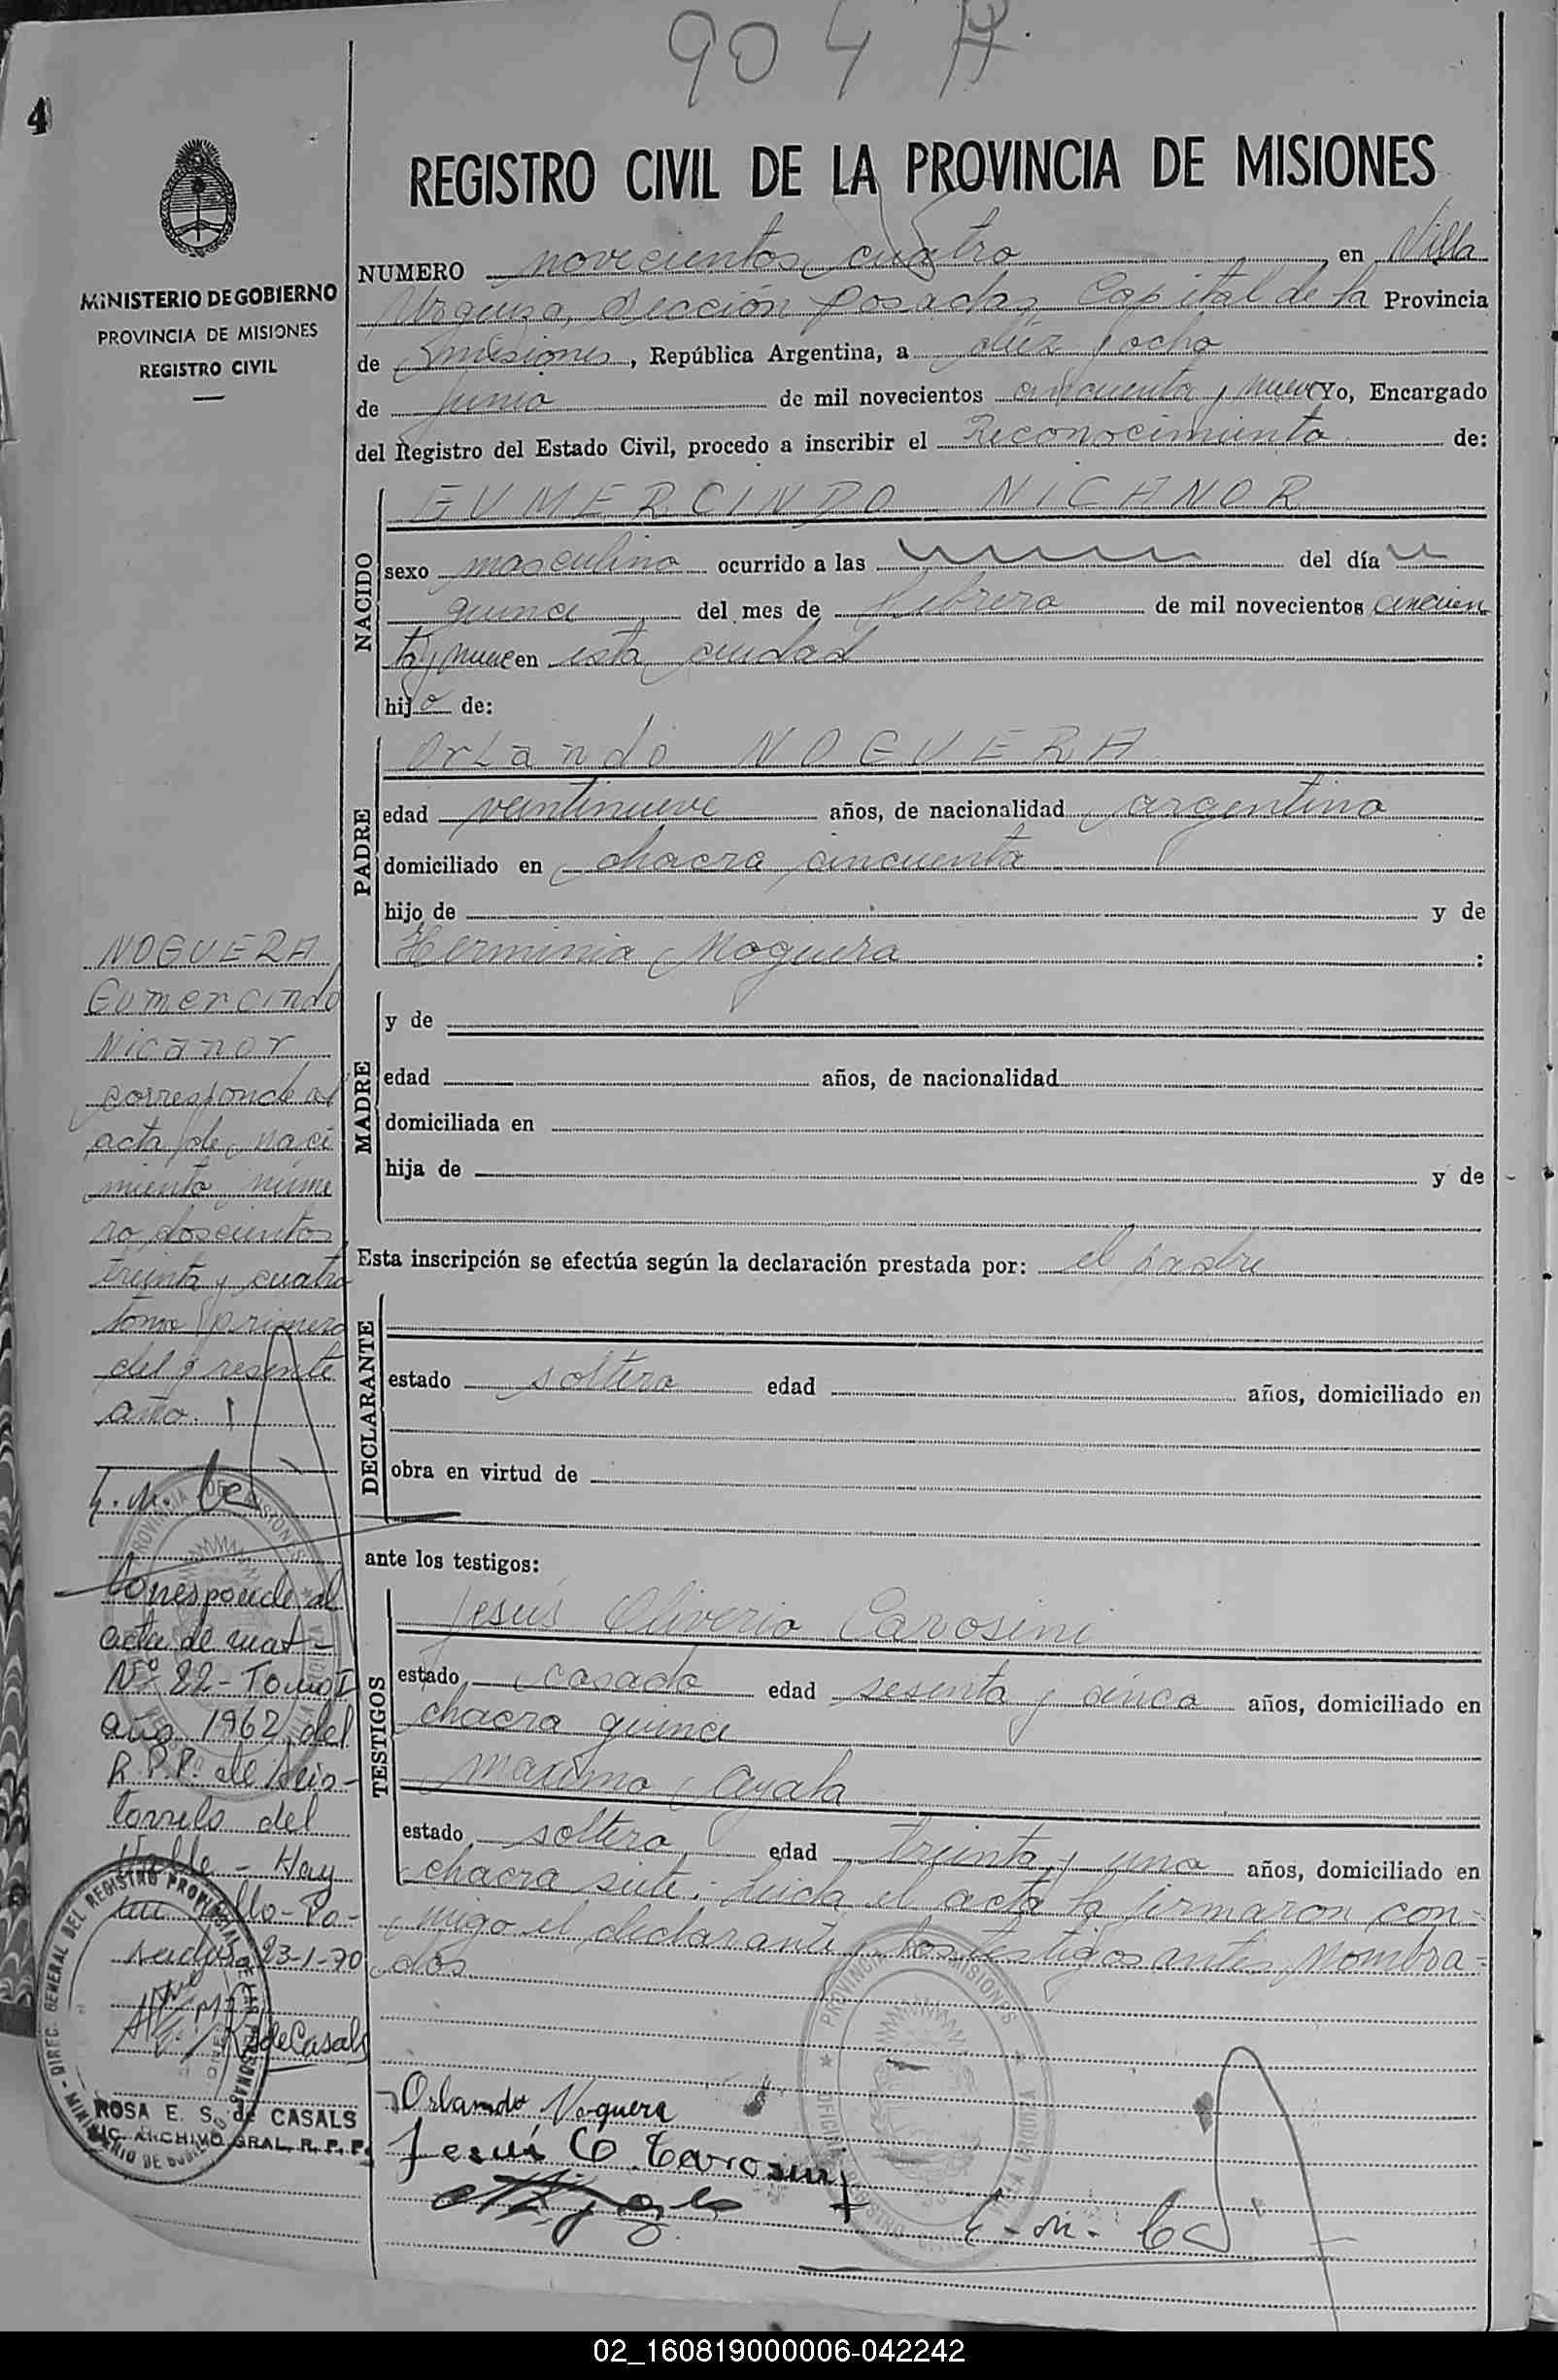 904 A
4
MINISTERIO DE GOBIERNO
PROVINCIA DE MISIONES
REGISTRO CIVIL
REGISTRO CIVIL DE LA PROVINCIA DE MISIONES
NUMERO novecientos cuatro en Villa
Urquiza, Sección Posadas, Capital de la Provincia
de Misiones, República Argentina, a diez y ocho
de Junio de mil novecientos cincuenta y nueve Yo, Encargado
del Registro del Estado Civil, procedo a inscribir el Reconocimiento de:
NACIDO
GUMERCINDO NICANOR
sexo masculino ocurrido a las del día
quince del mes de febrero de mil novecientos cincuen
ta y nueve en esta ciudad
hijo de:
PADRE
Orlando NOGUERA
edad veintinueve años, de nacionalidad argentino
domiciliado en chacra cincuenta
hijo de y de
Herminia Noguera :
MADRE
y de
edad años, de nacionalidad
domiciliada en
hija de y de
Esta inscripción se efectúa según la declaración prestada por: el padre
DECLARANTE
estado soltero edad años, domiciliado en
obra en virtud de
ante los testigos:
TESTIGOS
Jesús Oliverio Carosini
estado casado edad sesenta y cinco años, domiciliado en
chacra quince
Maximo Ayala
estado soltero edad treinta y uno años, domiciliado en
chacra siete. Leida el acta la firmaron con-
migo el declarante y los testigos antes nombra-
dos
Orlando Noguera
Jesús O. Carosini
NOGUERA
Gumercindo
Nicanor
corresponde al
acta de naci
miento núme
ro doscientos
treinta y cuatro
tomo primero
del presente
año.
Corresponde al
acta de mat-
Nº 22 - Tomo I
año 1962 del
R.P.P. de
del
Valle - Hay
un sello - Po-
sadas 23-1-70
R S de Casals
ROSA E. S. de CASALS
ARCHIVO GRAL. R. P. P.
DIREC. GENERAL DEL REGISTRO PROVINCIAL DE LAS PERSONAS - MINISTERIO DE GOBIERNO
PROVINCIA DE MISIONES
02_160819000006-042242